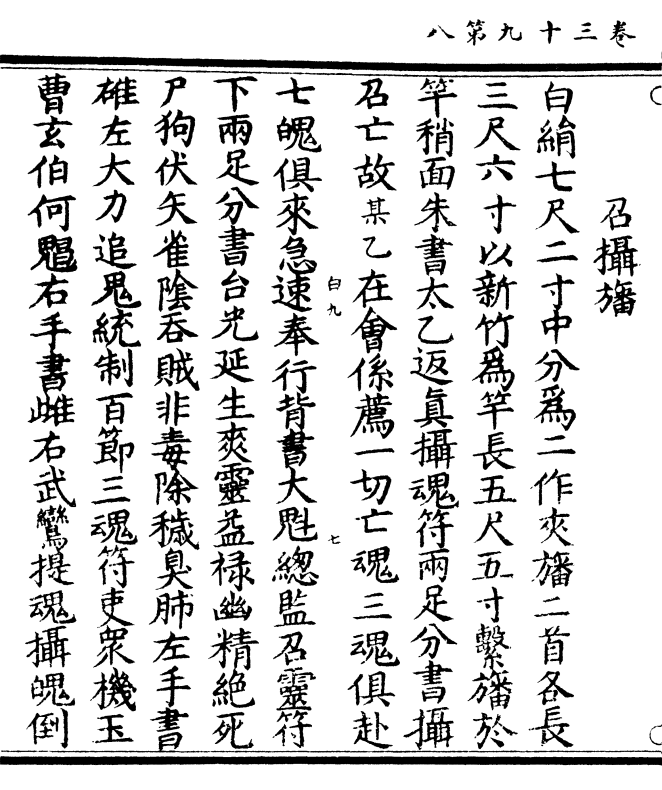 卷三十九第八
召攝旛
白絹七尺二寸中分爲二作夾旛二首各長
三尺六寸以新竹爲竿長五尺五寸繫旛於
竿稍面朱書太乙返真攝魂符兩足分書攝
召亡故某乙在會係薦一切亡魂三魂俱赴
白九 七
七魄俱來急速奉行背書大魁總監召靈符
下兩足分書台光延生爽靈益祿幽精絶死
尸狗伏矢雀陰吞賊非毒除穢臭肺左手書
雄左大力追鬼統制百節三魂符吏衆機玉
曹玄伯何鬼右手書雌右武鸞提魂攝魄倒